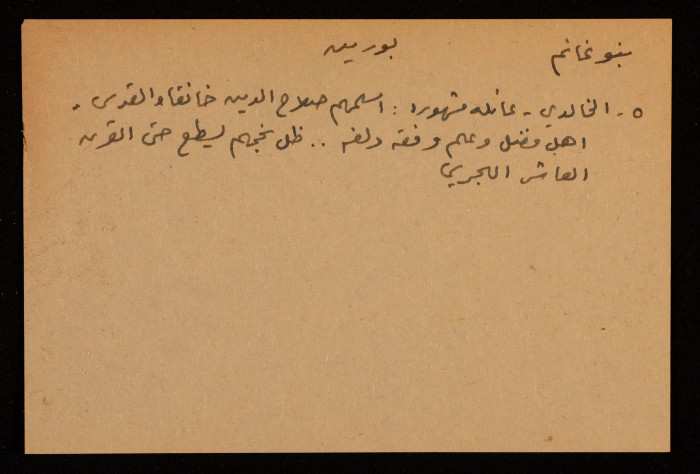 بنو غانم بورين
٥ - الخالدي - عائلة مشهورة : اسلمهم صلاح الدين خانقاه القدس .
اهل فضل وعلم وفقه ولغه .. ظل نجمهم يسطع حتى القرن
العاشر الهجري